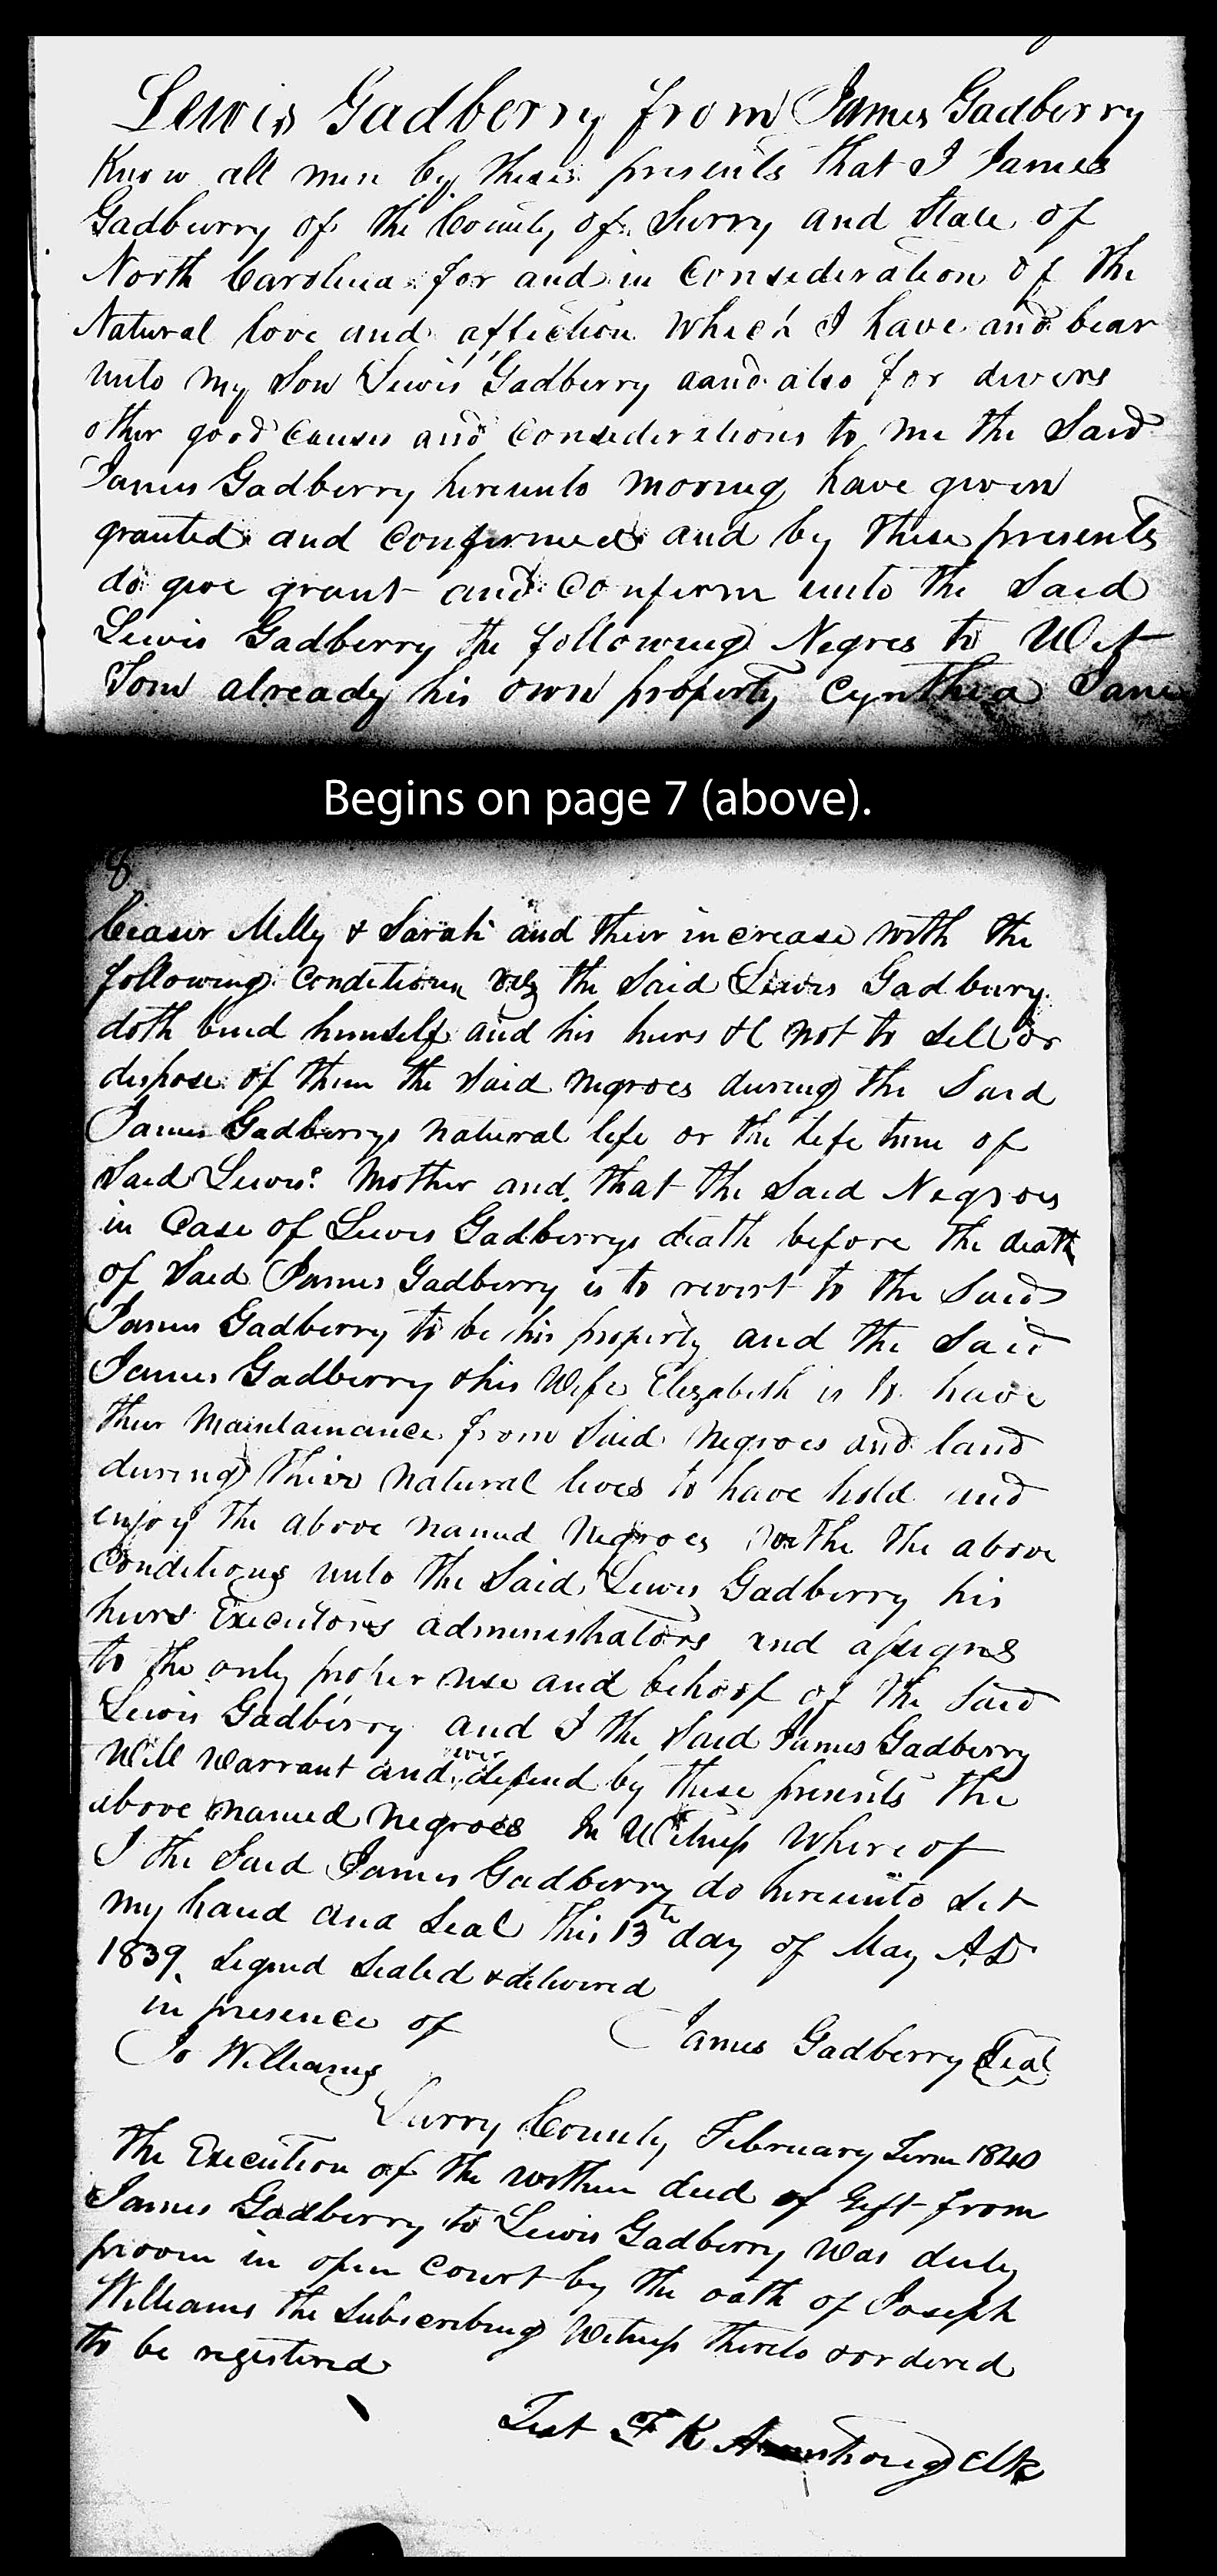 Lewis Gadberry from James Gadberry
Know all men by these presents that I James
Gadburry of the County of Surry and State of
North Carolina for and in Consideration of the
Natural love and affection which I have and bear
unto my Son Lewis Gadberry aand also for divers
other good Causes and Considerations to me the Said
James Gadberry hereunto moving have given
granted and Confirmed and by these presents
do give grant and Confirm unto the Said
Lewis Gadberry the following Negres to Wit
Tom already his own property Cynthia Jane
Begins on page 7 (above).
8
Ceaser Milly & Sarah and their increase with the
following Conditions viz the Said Lewis Gadbury
doth bind himself and his heirs &c not to sell or
dispose of them the said negroes during the Said
James Gadberrys natural life or the life time of
Said Lewis' Mother and that the Said Negroes
in Case of Lewis Gadberrys death before the death
of Said James Gadberry is to revert to the Said
James Gadberry to be his property and the Said
James Gadberry & his Wife Elizabeth is to have
their Maintainance from Said negroes and land
during their natural lives to have hold and
enjoy the above named Negroes withe the above
Conditions unto the Said Lewis Gadberry his
heirs Executors administrators and assigns
to the only proper use and behoof of the Said
Lewis Gadberry and I the Said James Gadberry
Will warrant and ever defend by these presents the
above named negroes In Witness Whereof
I the Said James Gadberry do hereunto set
my hand and Seal this 13th day of May AD
1839. Signed Sealed & delivered
in presence of
James Gadberry Seal
Jo Williams
Surry County February Term 1840
The Execution of the within deed of Gift from
James Gadberry to Lewis Gadberry was duly
prooven in open Court by the oath of Joseph
Williams the Subscribing Witness thereto & ordered
to be registered
Test F K Armstrong Clk